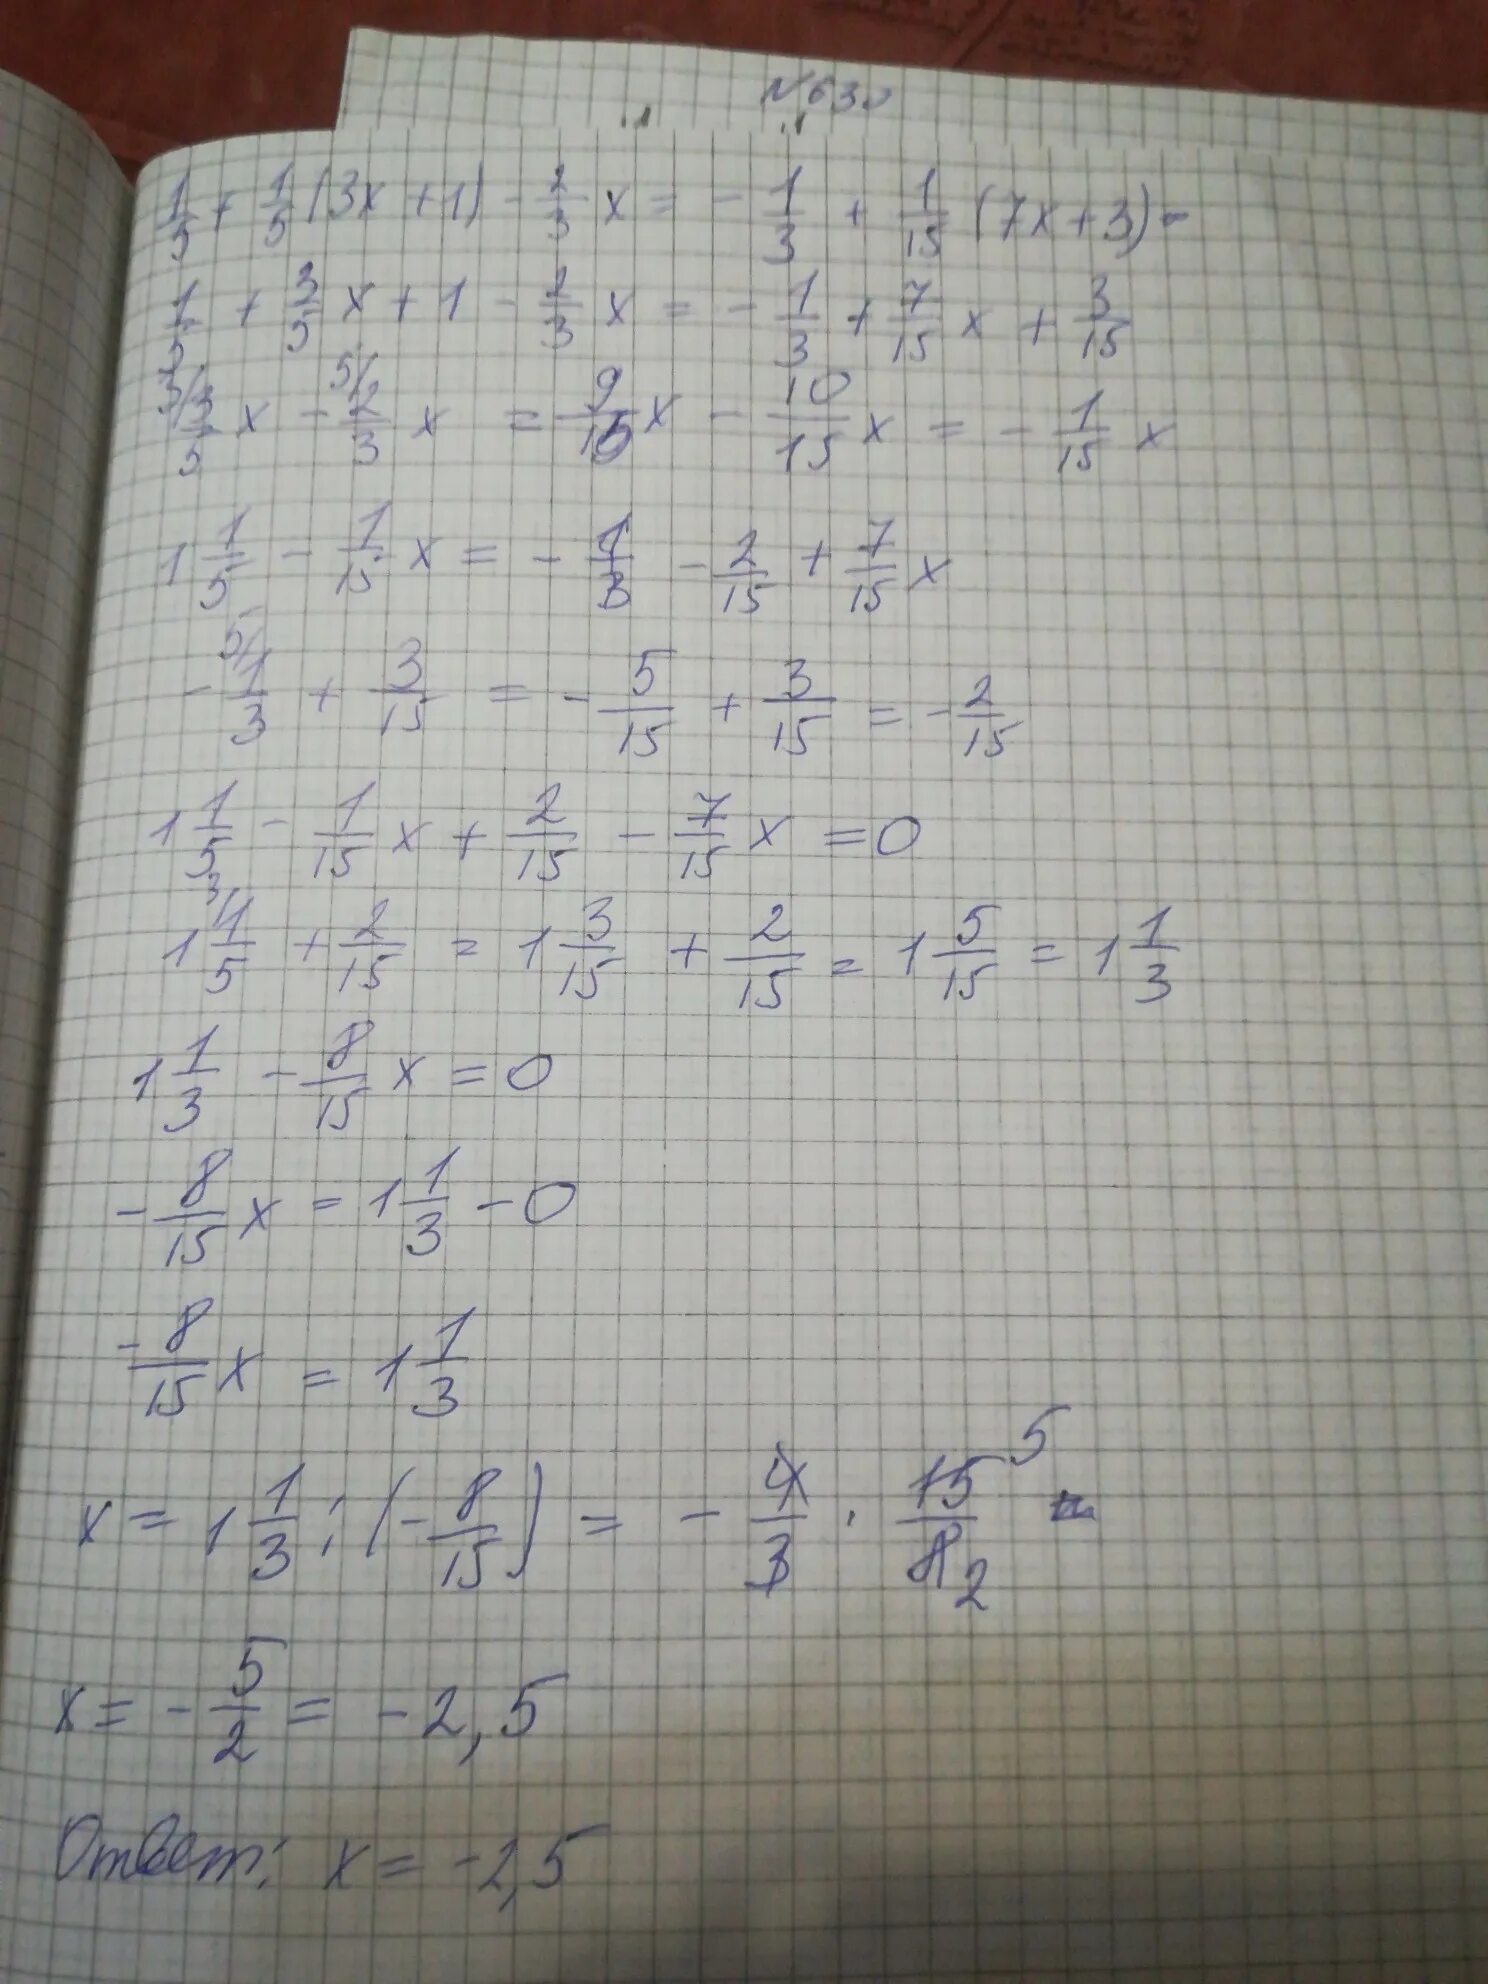 N 630
1/5 + 1/5 (3x + 1) - 2/3 x = - 1/3 + 1/15 (7x + 3) -
1/5 + 3/5 x + 1 - 2/3 x = - 1/3 + 7/15 x + 3/15
3/ 3/5 x - 5/ 2/3 x = 9/15 x - 10/15 x = - 1/15 x
1 1/5 - 1/15 x = - 1/3 - 2/15 + 7/15 x
- 5/ 1/3 + 3/15 = - 5/15 + 3/15 = - 2/15
1 1/5 - 1/15 x + 2/15 - 7/15 x = 0
1 3/ 1/5 + 2/15 = 1 3/15 + 2/15 = 1 5/15 = 1 1/3
1 1/3 - 8/15 x = 0
- 8/15 x = 1 1/3 - 0
- 8/15 x = 1 1/3
x = 1 1/3 : (- 8/15) = - 4/3 · 15 5/8 2 =
x = - 5/2 = - 2,5
Ответ: x = -2,5